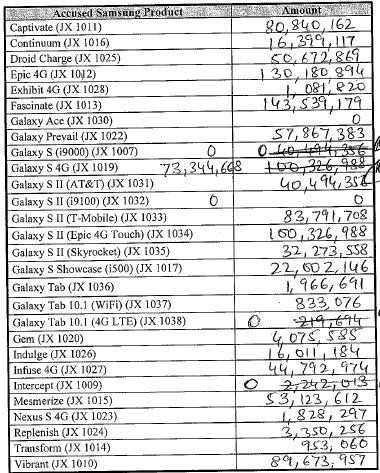 Accused Samsung Product Amount
Captivate (JX 1011) 80,840,162
Continuum (JX 1016) 16,399,117
Droid Charge (JX 1025) 50,672,869
Epic 4G (JX 1012) 130,180,894
Exhibit 4G (JX 1028) 1,081,820
Fascinate (JX 1013) 143,539,179
Galaxy Ace (JX 1030) 0
Galaxy Prevail (JX 1022) 57,867,383
Galaxy S (i9000) (JX 1007) 0 0 40,494,356
Galaxy S 4G (JX 1019) 73,344,668 100,326,988
Galaxy S II (AT&T) (JX 1031) 40,494,356
Galaxy S II (i9100) (JX 1032) 0 0
Galaxy S II (T-Mobile) (JX 1033) 83,791,708
Galaxy S II (Epic 4G Touch) (JX 1034) 100,326,988
Galaxy S II (Skyrocket) (JX 1035) 32,273,558
Galaxy S Showcase (i500) (JX 1017) 22,002,146
Galaxy Tab (JX 1036) 1,966,691
Galaxy Tab 10.1 (WiFi) (JX 1037) 833,076
Galaxy Tab 10.1 (4G LTE) (JX 1038) 0 219,694
Gem (JX 1020) 4,075,585
Indulge (JX 1026) 16,011,184
Infuse 4G (JX 1027) 44,792,974
Intercept (JX 1009) 0 2,242,013
Mesmerize (JX 1015) 53,123,612
Nexus S 4G (JX 1023) 1,828,297
Replenish (JX 1024) 3,350,256
Transform (JX 1014) 953,060
Vibrant (JX 1010) 89,673,957